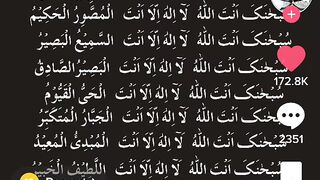 سُبْحٰنَکَ اَنْتَ اللّٰهُ لَآ اِلٰهَ اِلَّآ اَنْتَ الْمُصَّوِّرُ الْحَکِیْمُ
سُبْحٰنَکَ اَنْتَ اللّٰهُ لَآ اِلٰهَ اِلَّآ اَنْتَ السَّمِیْعُ الْبَصِیْرُ
سُبْحٰنَکَ اَنْتَ اللّٰهُ لَآ اِلٰهَ اِلَّآ اَنْتَ الْبَصِیْرُ الصَّادِقُ
172.8K
سُبْحٰنَکَ اَنْتَ اللّٰهُ لَآ اِلٰهَ اِلَّآ اَنْتَ الْحَیُّ الْقَیُّوْمُ
سُبْحٰنَکَ اَنْتَ اللّٰهُ لَآ اِلٰهَ اِلَّآ اَنْتَ الْجَبَّارُ الْمُتَکَبِّرُ
2351
سُبْحٰنَکَ اَنْتَ اللّٰهُ لَآ اِلٰهَ اِلَّآ اَنْتَ الْمُبْدِیُٔ الْمُعِیْدُ
سُبْحٰنَکَ اَنْتَ اللّٰهُ لَآ اِلٰهَ اِلَّآ اَنْتَ اللَّطِیْفُ الْخَبِیْرُ